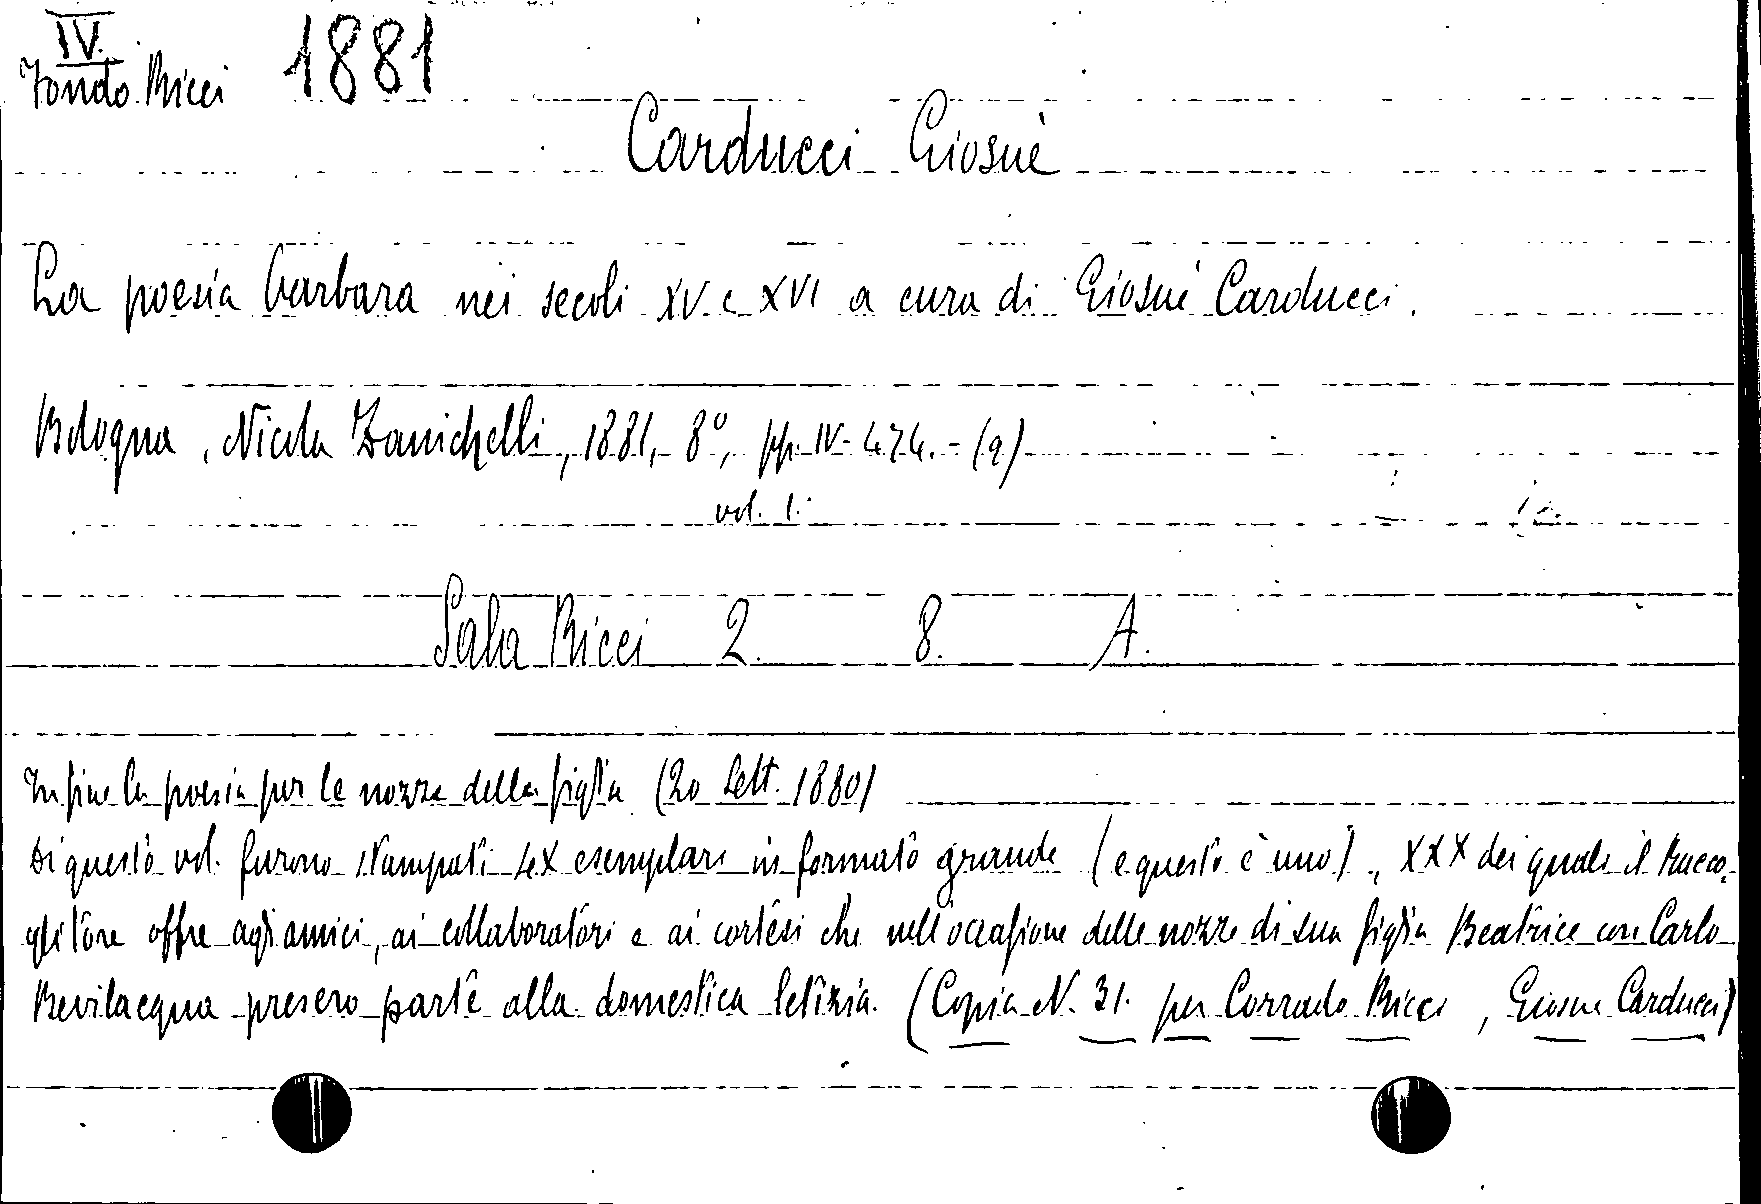 IV.
Fondo Ricci 1881
Carducci Giosuè
La poesia barbara nei secoli XV e XVI a cura di Giosuè Carducci.
Bologna, Nicola Zanichelli, 1881, 8°, pp. IV-474.-(2)
vol. 1.
Sala Ricci 2. 8. A.
In fine la poesia per le nozze della figlia (20 Sett. 1880)
Di questo vol. furono stampati LX esemplari in formato grande (e questo è uno), XXX dei quali il racco-
glitore offre agli amici, ai collaboratori e ai cortesi che nell'occasione delle nozze di sua figlia Beatrice con Carlo
Bevilacqua presero parte alla domestica letizia. (Copia N. 31. per Corrado Ricci, Giosue Carducci)